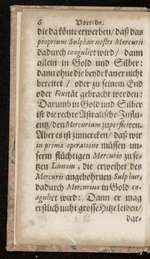 6 Vorrede.
die da könte erwerben / daß das
proprium Sulphur nostri Mercurii
dadurch coagulirt wird / dann
allein in Gold und Silber
dann ohne die beyde kaner nicht
bereitet / oder zu seinem End
oder fixität gebracht werden:
Darumb in Gold und Silber
ist die rechte Astralische Influ-
entz / den Mercurium zu perficiren.
Aber es ist zu mercken / daß wir
in prima operatione müssen un-
serm flüchtigen Mercurio zuse-
tzen Lunam, die erweiset des
Mercurii angebohrnen Sulphur,
dadurch Mercurius in Gold co-
aguliret wird: Dann er mag
erstlich nicht grosse Hitze leiden /
dar-